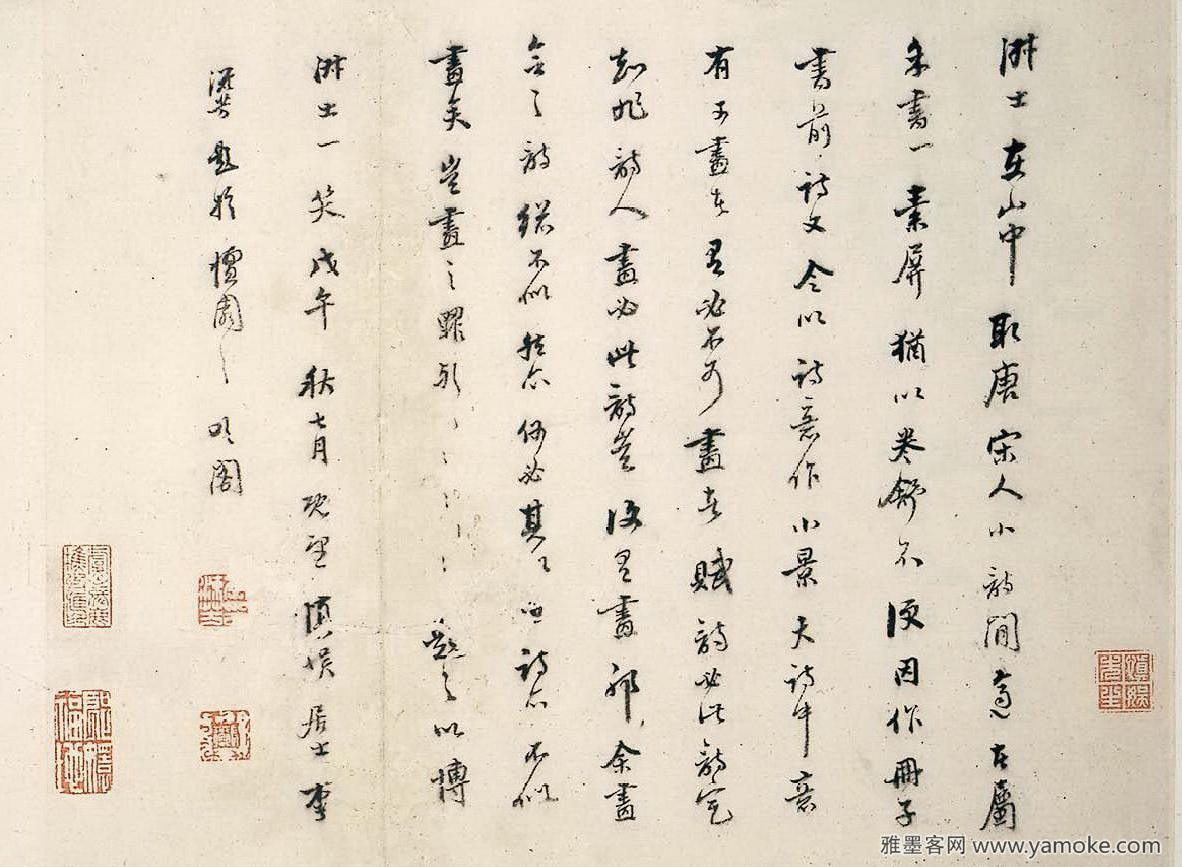 淑士在山中取唐宋人小詩閒遠者屬
余書一素屏猶以卷舒不便因作冊子
書前詩文令以詩意作小景夫詩中意
有可畫者有必不可畫者賦詩必此詩定
知非詩人畫必此詩豈復是畫耶余畫
之詩縱不似然亦何必其詩亦不似
畫矣豈畫之罪歟題之以博
淑士一笑戊午秋七月既望慎娛居士李
題於檀園之閣
雅墨客网 www.yamoke.com